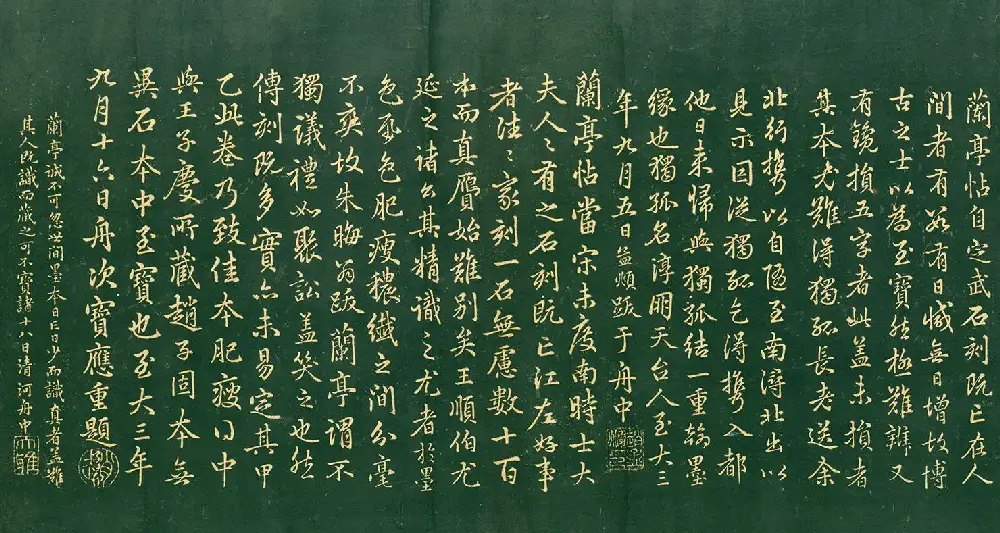 蘭亭帖自定武石刻既亡在人
間者有數有日減無日增故博
古之士以為至寶然極難辨又
有鐫損五字者此盖未損者
其本尤難得獨孤長老送余
北行攜以自隨至南潯北出以
見示因從獨孤乞得攜入都
他日来歸與獨孤結一重翰墨
緣也獨孤名淳朋天台人至大三
年九月五日孟頫跋于舟中
蘭亭帖當宋未度南時士大
夫人々有之石刻既亡江左好事
者往々家刻一石無慮數十百
本而真贗始難別矣王順伯尤
延之諸公其精識之尤者於墨
色紙色肥瘦穠纖之間分毫
不爽故朱晦翁跋蘭亭謂不
獨議禮如聚訟盖笑之也然
傳刻既多實亦未易定其甲
乙此卷乃致佳本肥瘦得中
與王子慶所藏趙子固本無
異石本中至寶也至大三年
九月十六日舟次寶應重題
蘭亭誠不可忽世間墨本日亡日少而識真者盖難
其人既識而藏之可不寶諸十八日清河舟中